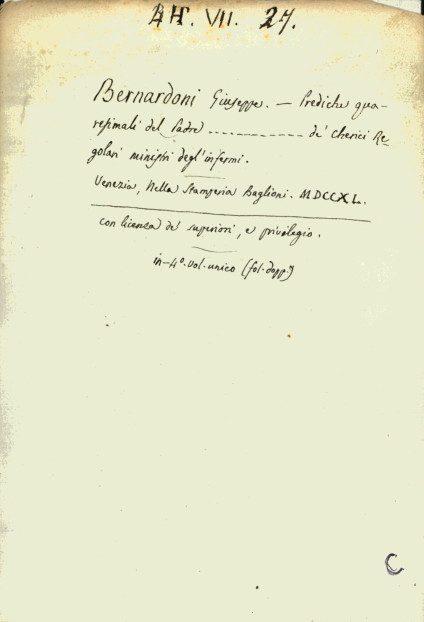 AA. VII. 27.
Bernardoni Giuseppe. — Prediche qua-
resimali del Padre ------------ de' Cherici Re-
golari ministri degl'infermi.
Venezia, Nella Stamperia Baglioni. MDCCXL.
con licenza de' superiori, e privilegio.
in-4º. vol. unico (fol. dopp.)
C